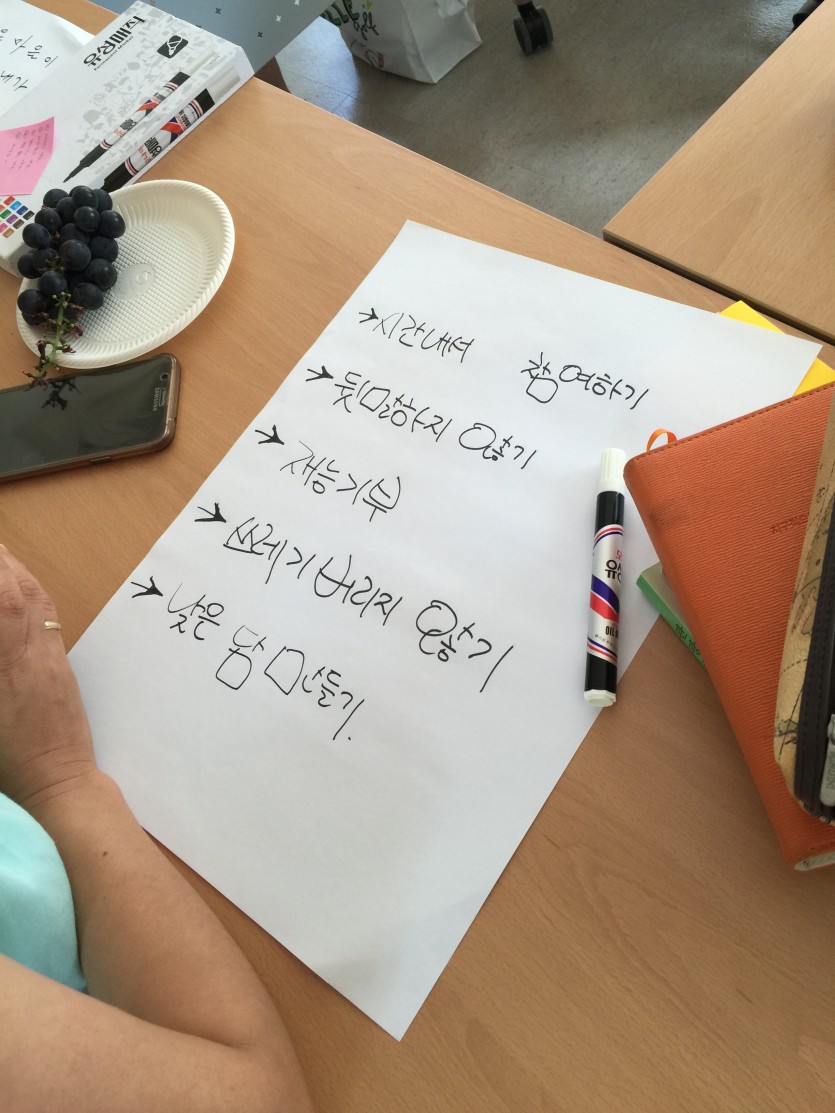 유성매직
→시간내서 참여하기
→뒷말하지 않기
→재능기부
→쓰레기 버리지 않기
→낮은 담 만들기.
유성
OIL